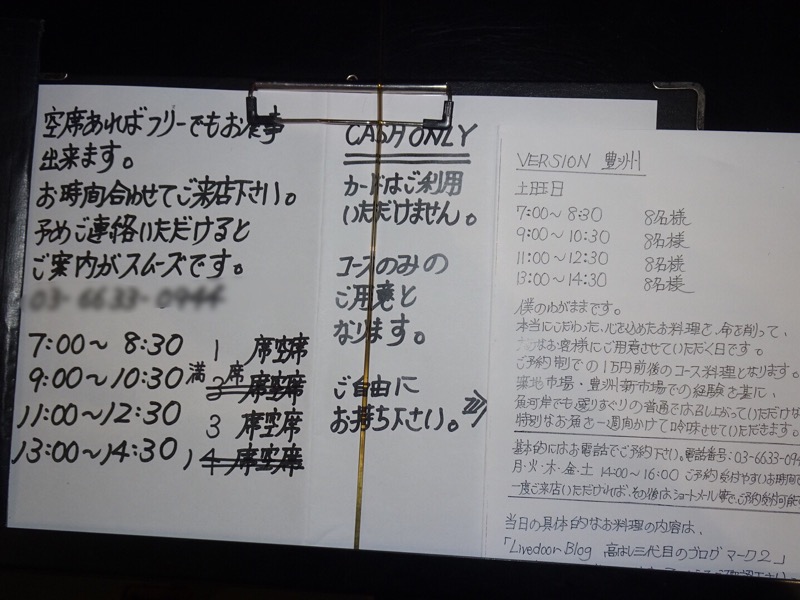 空席あればフリーでもお食事
出来ます。
お時間合わせてご来店下さい。
予めご連絡いただけると
ご案内がスムーズです。
7:00〜 8:30 1 席空席
9:00〜10:30 満席
11:00〜12:30 3 席空席
13:00〜14:30 席空席
CASH ONLY
カードはご利用
いただけません。
コースのみの
ご用意と
なります。
ご自由に
お持ち下さい。
VERSION 豊洲
土曜日
7:00〜8:30 8名様
9:00〜10:30 8名様
11:00〜12:30 8名様
13:00〜14:30 8名様
僕のわがままです。
本当にこだわった、心を込めたお料理を、命を削って、
なお客様にご用意させていただく日です。
ご予約制での1万円前後のコース料理となります。
築地市場・豊洲新市場での経験を基に、
魚河岸でも選りすぐりの普通では召し上がっていただけな
特別なお魚を一週間かけて吟味させていただきます。
基本的にはお電話でご予約下さい。電話番号:03-6633-094
月・火・木・金・土 14:00〜16:00 ご予約受付やすいお時間で
一度ご来店いただければ、その後はショートメール等でご予約受付可能で
当日の具体的なお料理の内容は、
「Livedoor Blog 高はし三代目のブログ マーク2」